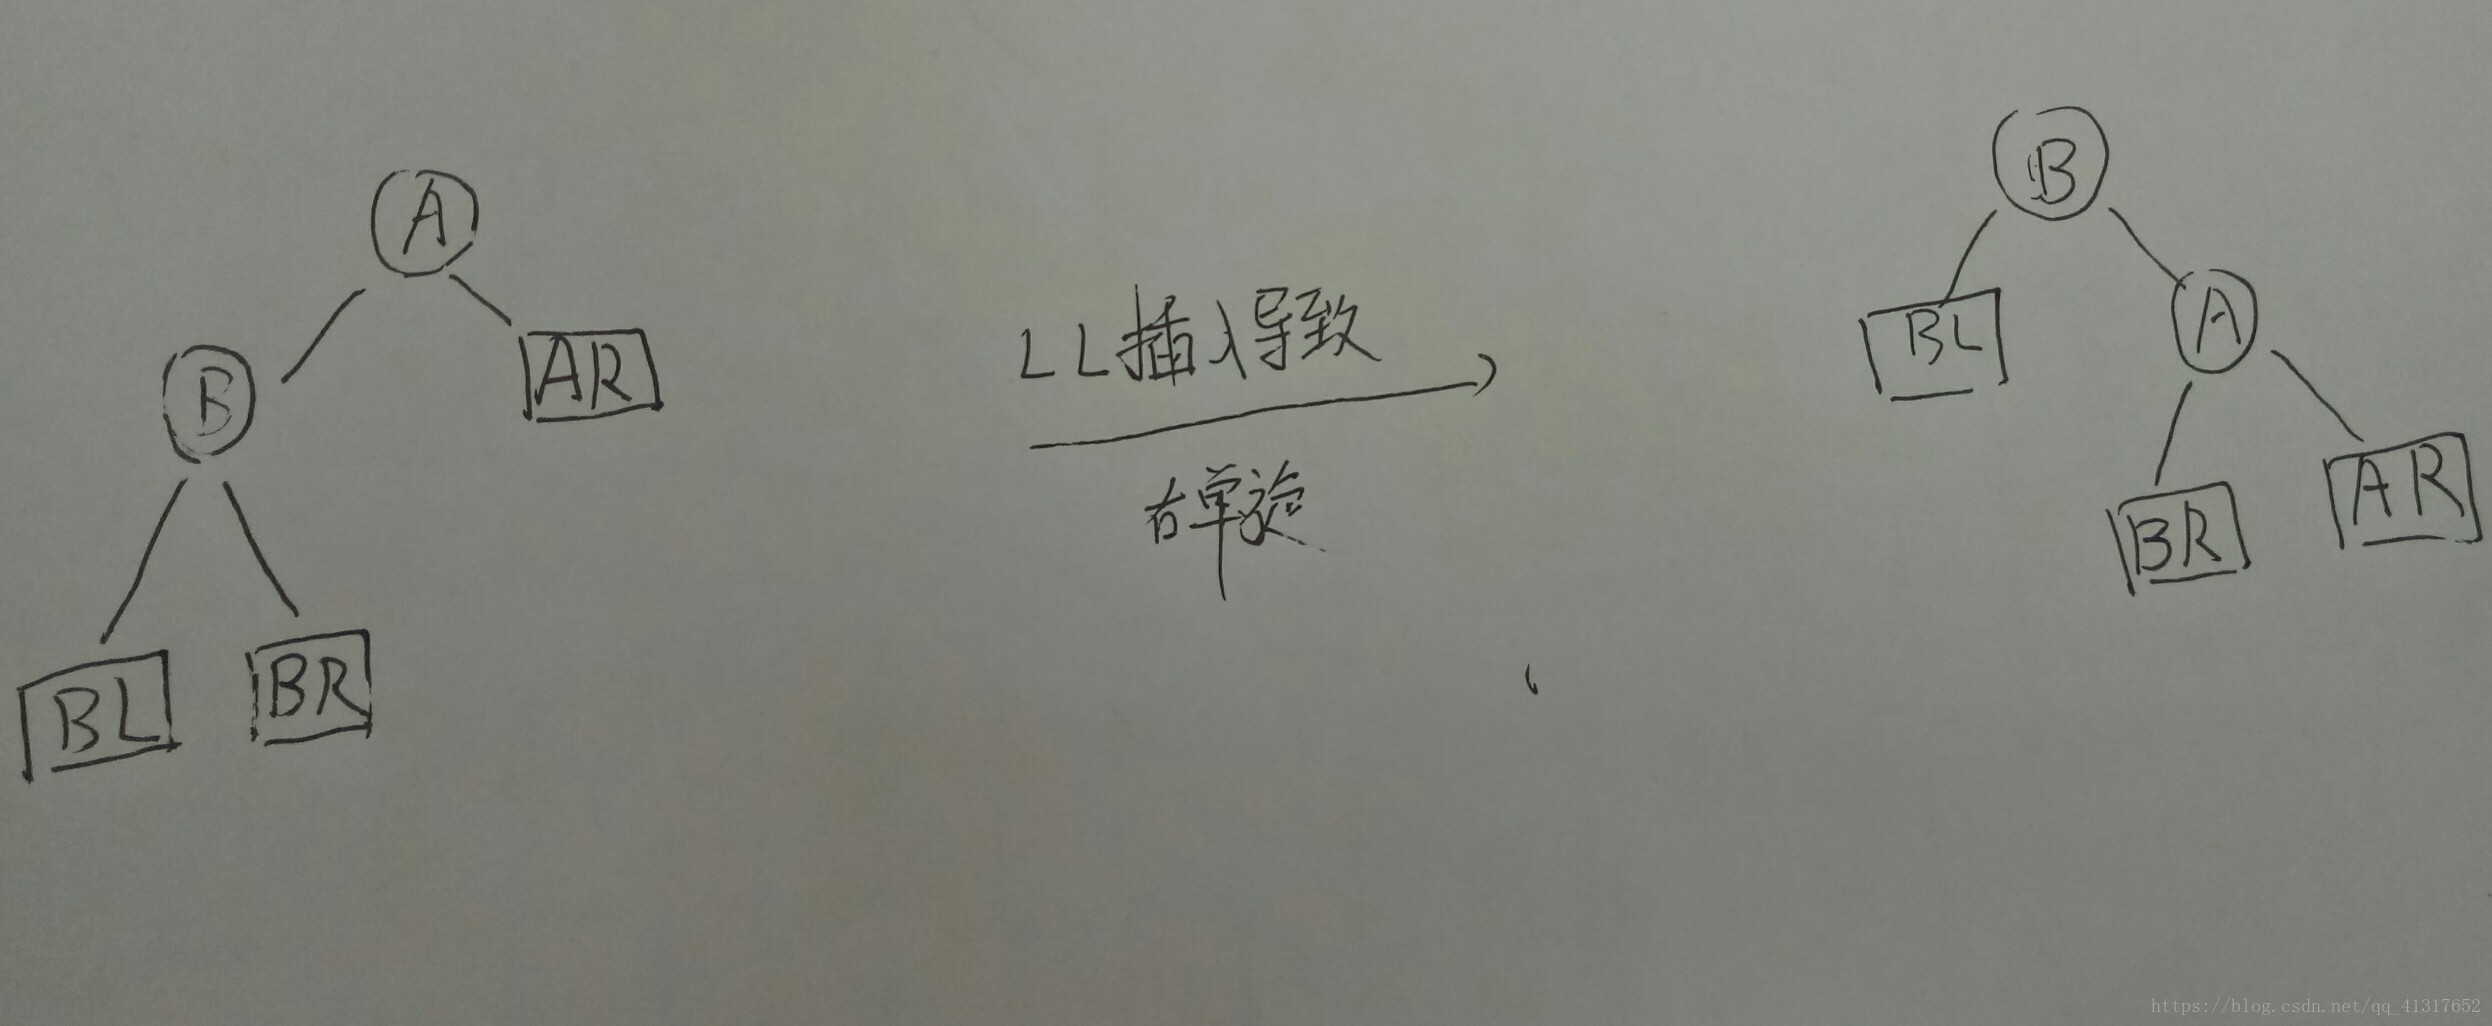 A
B
AR
BL
BR
LL插入导致
右单旋
B
BL
A
BR
AR
https://blog.csdn.net/qq_41317652